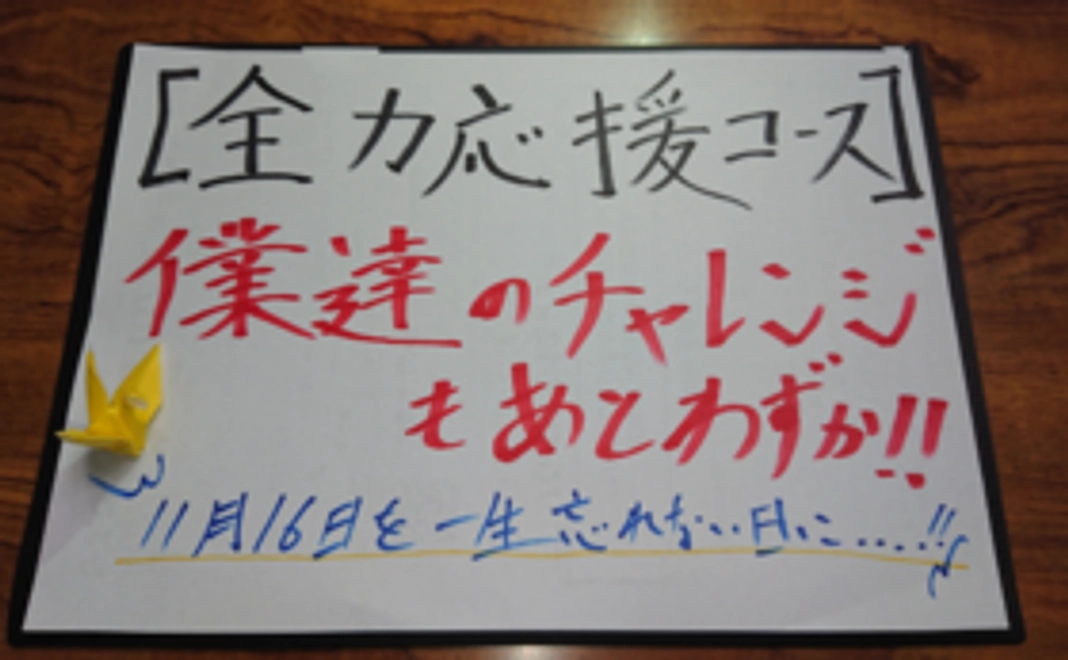 ［全力応援コース］
僕達のチャレンジ
もあとわずか!!
11月16日を一生忘れない日に....!!